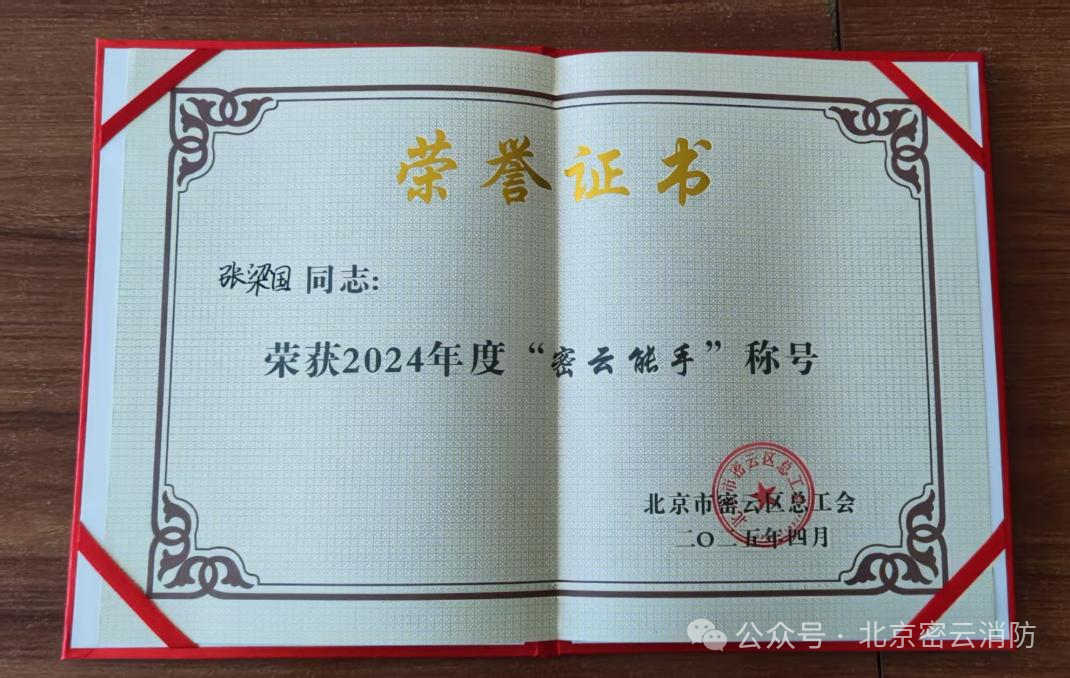 荣誉证书
张梁国 同志:
荣获2024年度“密云能手”称号
北京市密云区总工会
北京市密云区总工会
二〇二五年四月
公众号·北京密云消防